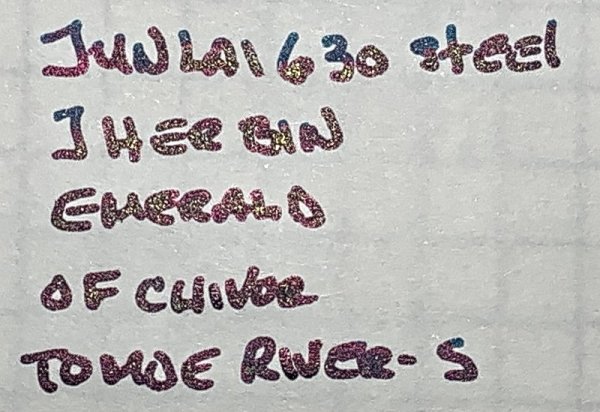 JUNLAI 630 steel
J HERBIN
EMERALD
OF CHIVOR
TOMOE RIVER-S